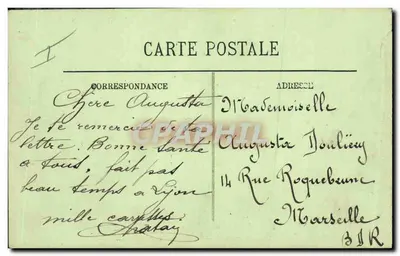 I
CARTE POSTALE
CORRESPONDANCE
Chère Augusta
Je te remercie de ta
lettre. Bonne santé
a tous, fait pas
beau temps a Lyon
mille
ADRESSE
Mademoiselle
Augusta
14 Rue Roqueberune
Marseille
B D R